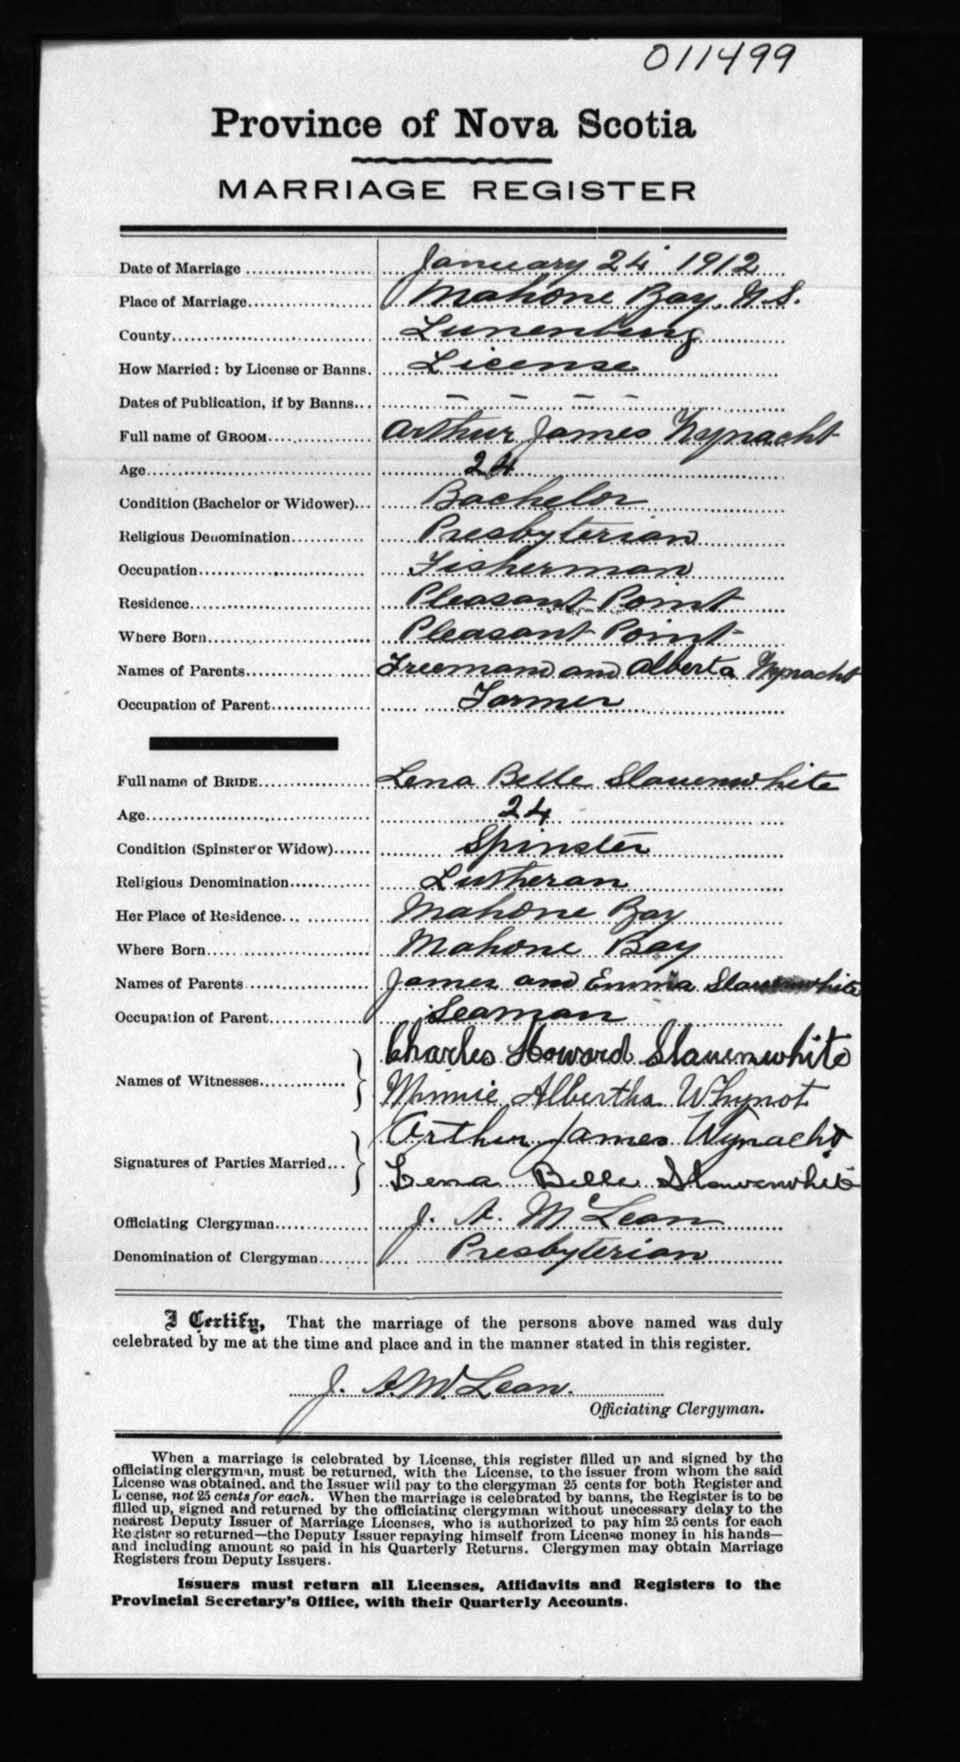 011499
Province of Nova Scotia
MARRIAGE REGISTER
Date of Marriage January 24 1912
Place of Marriage Mahone Bay, N.S.
County Lunenburg
How Married: by License or Banns. License
Dates of Publication, if by Banns... – – – –
Full name of GROOM Arthur James Wynacht
Age 24
Condition (Bachelor or Widower)... Bachelor
Religious Denomination Presbyterian
Occupation Fisherman
Residence Pleasant Point
Where Born Pleasant Point
Names of Parents Freeman and Alberta Wynacht
Occupation of Parent Farmer
Full name of BRIDE Lena Belle Slauenwhite
Age 24
Condition (Spinster or Widow) Spinster
Religious Denomination Lutheran
Her Place of Residence Mahone Bay
Where Born Mahone Bay
Names of Parents James and Emma Slauenwhite
Occupation of Parent Seaman
Names of Witnesses Charles Howard Slauenwhite
Minnie Albertha Whynot
Signatures of Parties Married... Arthur James Wynacht
Lena Belle Slauenwhite
Officiating Clergyman J. A. McLean
Denomination of Clergyman Presbyterian
I Certify, That the marriage of the persons above named was duly
celebrated by me at the time and place and in the manner stated in this register.
J. A. McLean.
Officiating Clergyman.
When a marriage is celebrated by License, this register filled up and signed by the
officiating clergyman, must be returned, with the License, to the issuer from whom the said
License was obtained, and the Issuer will pay to the clergyman 25 cents for both Register and
License, not 25 cents for each. When the marriage is celebrated by banns, the Register is to be
filled up, signed and returned by the officiating clergyman without unnecessary delay to the
nearest Deputy Issuer of Marriage Licenses, who is authorized to pay him 25 cents for each
Register so returned—the Deputy Issuer repaying himself from License money in his hands—
and including amount so paid in his Quarterly Returns. Clergymen may obtain Marriage
Registers from Deputy Issuers.
Issuers must return all Licenses, Affidavits and Registers to the
Provincial Secretary's Office, with their Quarterly Accounts.